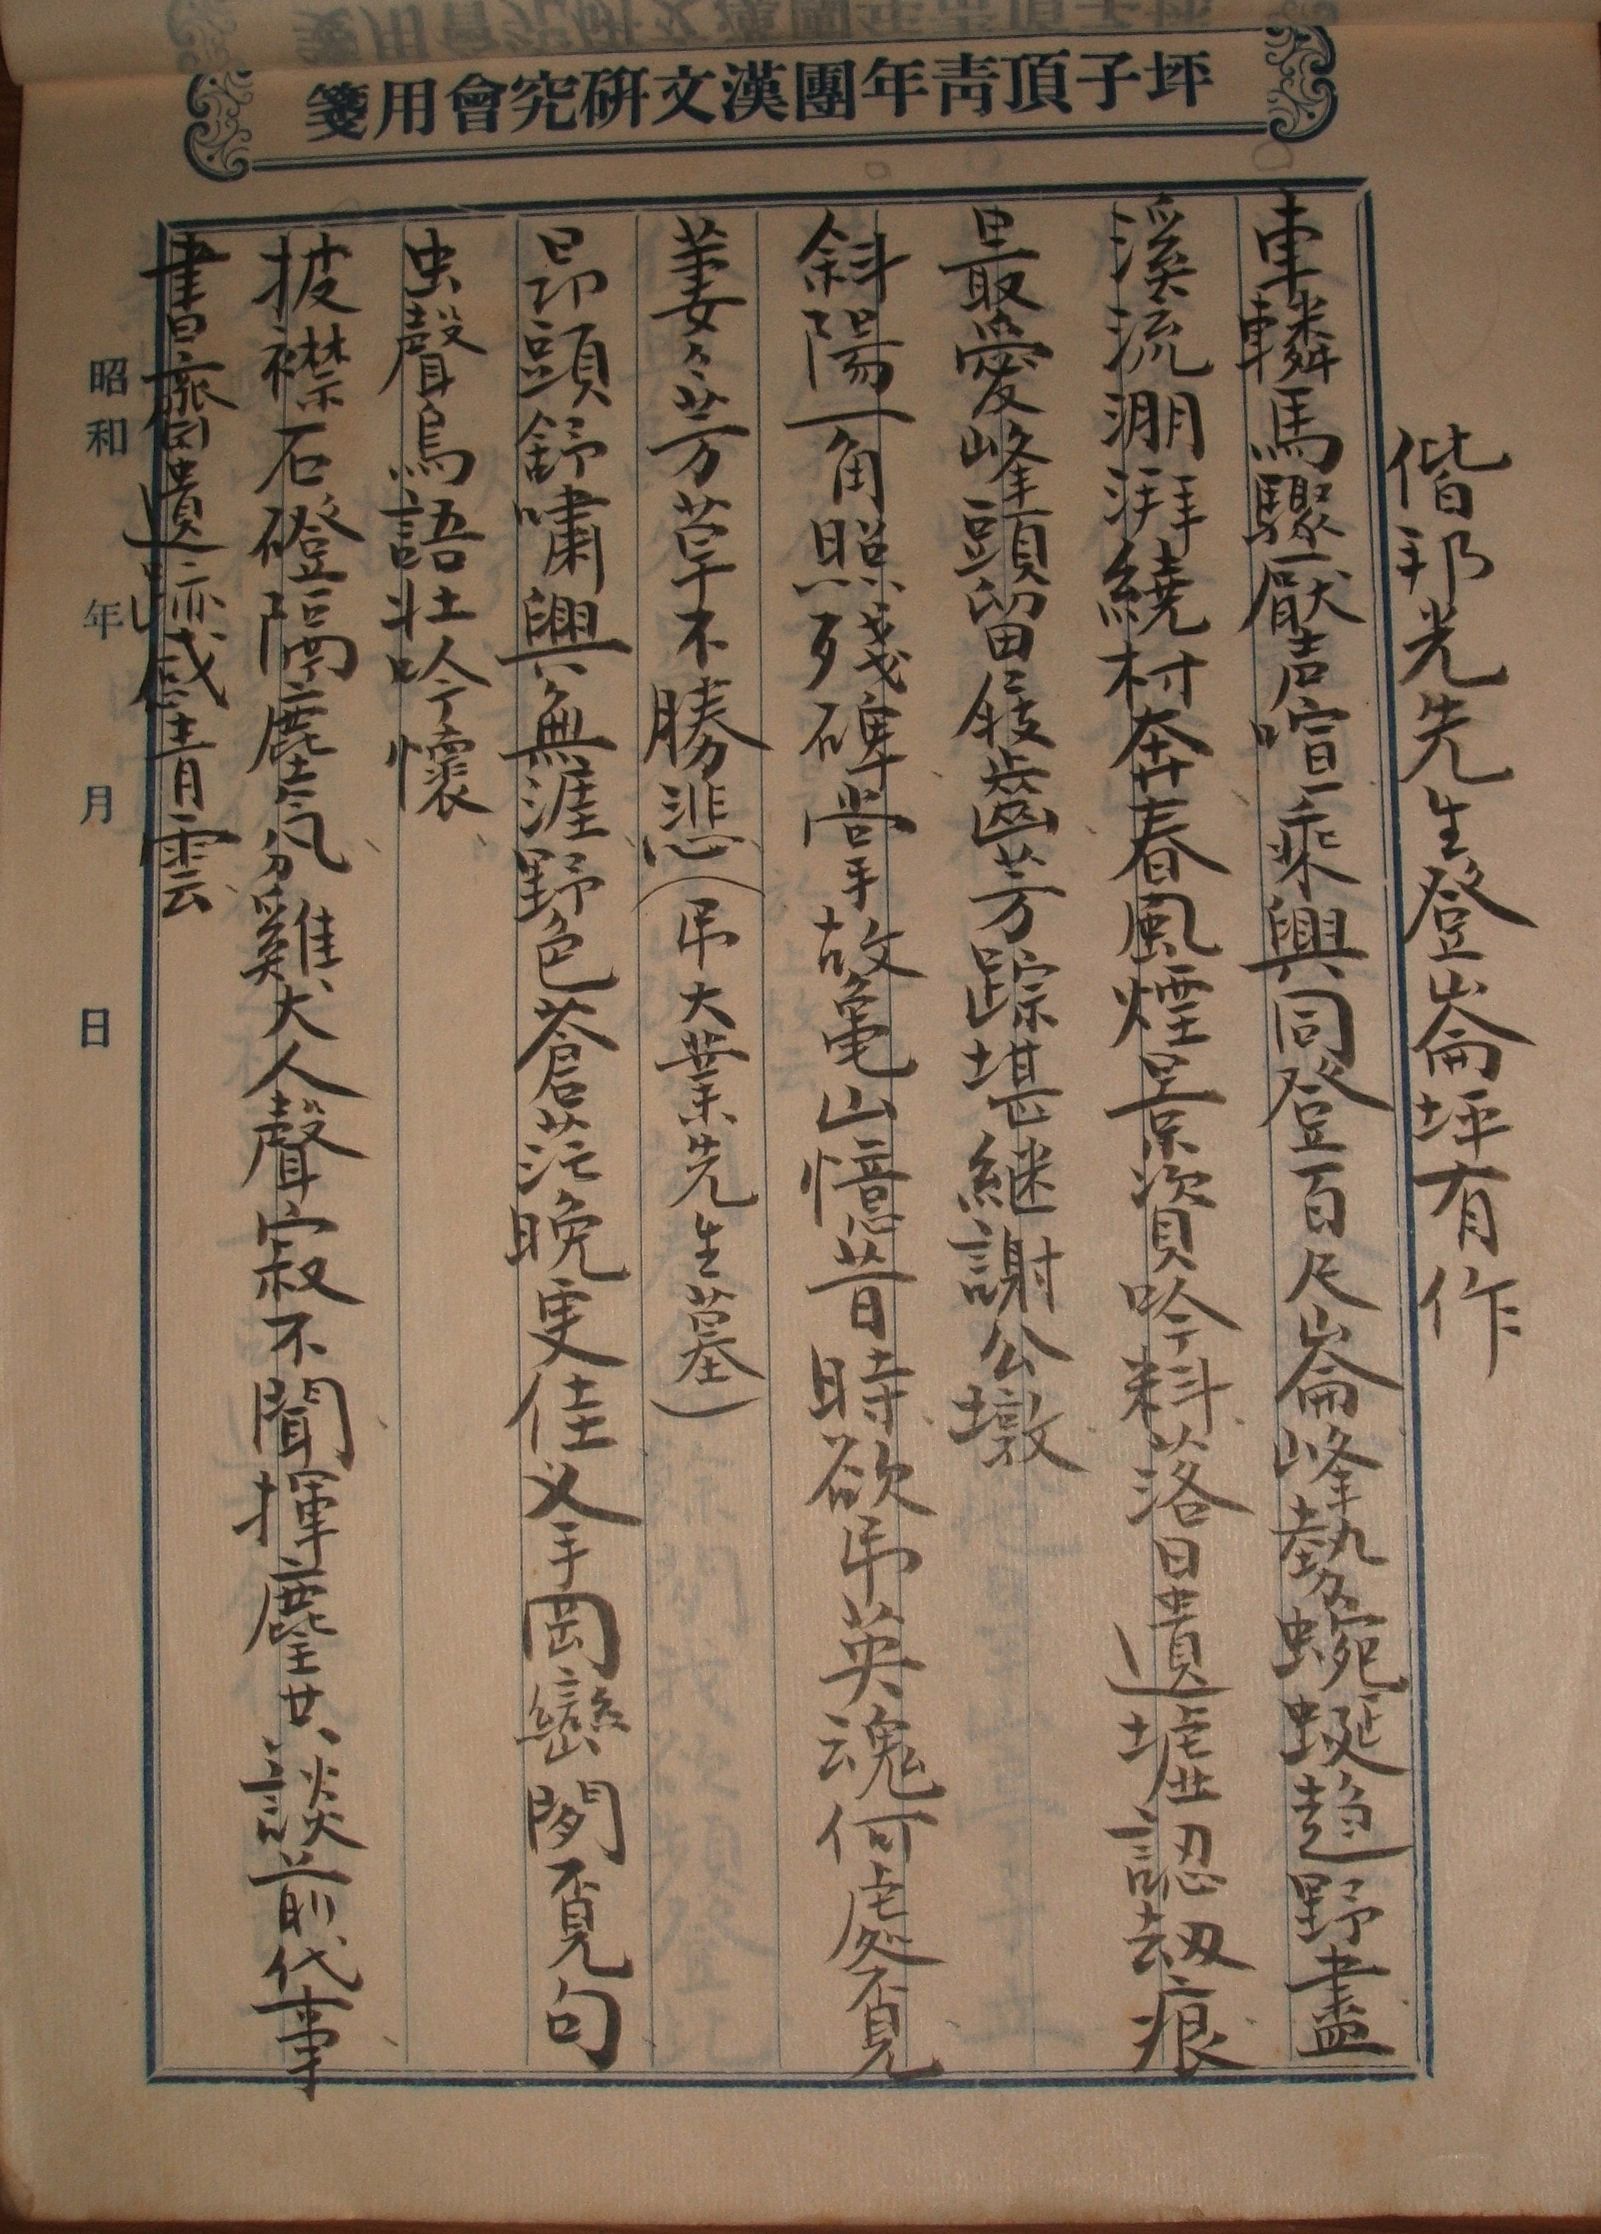 坪子頂青年團漢文研究會用箋
偕邦光先生登崙坪有作
車轔馬驟厭喧乘興同登百尺崙峰勢蜿蜒趋野盡
溪流淜湃繞村奔春風煙景資吟料落日遺墟認劫痕
最愛峰頭留屐齒芳踪堪継謝公墩
斜陽一角照殘碑掌故亀山憶昔時欲吊英魂何處覔
萋々芳草不勝悲(吊大業先生墓)
昂頭舒嘯興無涯野色蒼茫晩更佳义手岡巒閑覔句
虫聲鳥語壮吟懷
披襟石磴隔塵氛雞犬人聲寂不聞揮麈共談前代事
書齋遺跡感青雲
昭和 年 月 日